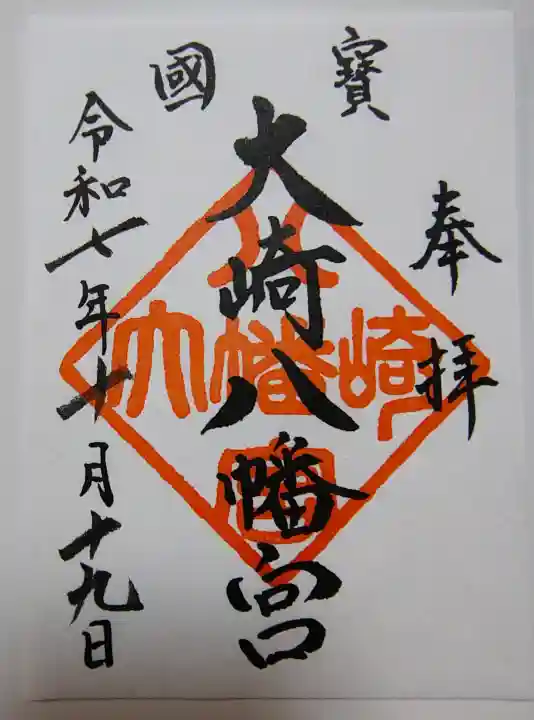 國寶
奉拝
大崎八幡宮
令和七年十月十九日